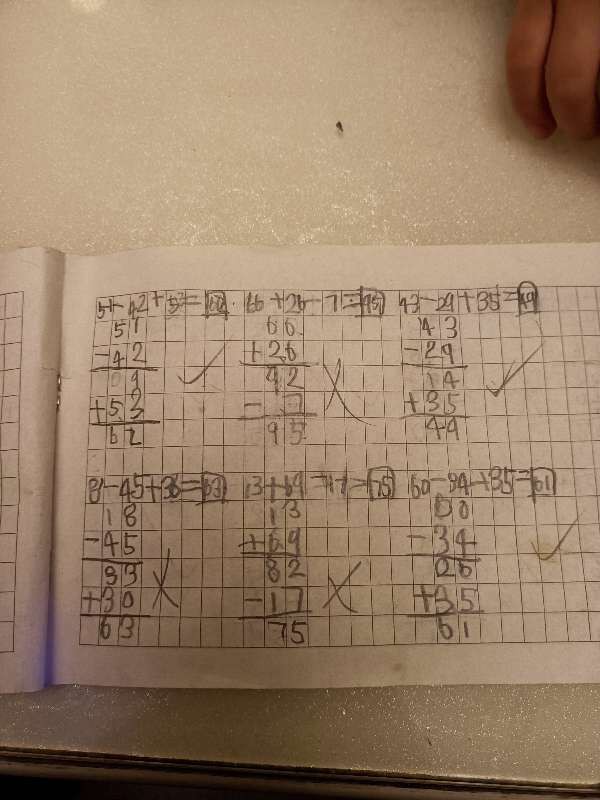 51-42+53=62 66+26-7=95 43-29+35=49
51 66 43
-42 +26 -29
09 92 14
+53 - 7 +35
62 95 49
8-45+36=63 13+69-17=75 60-34+35=61
18 13 60
-45 +69 -34
33 82 26
+30 -17 +35
63 75 61